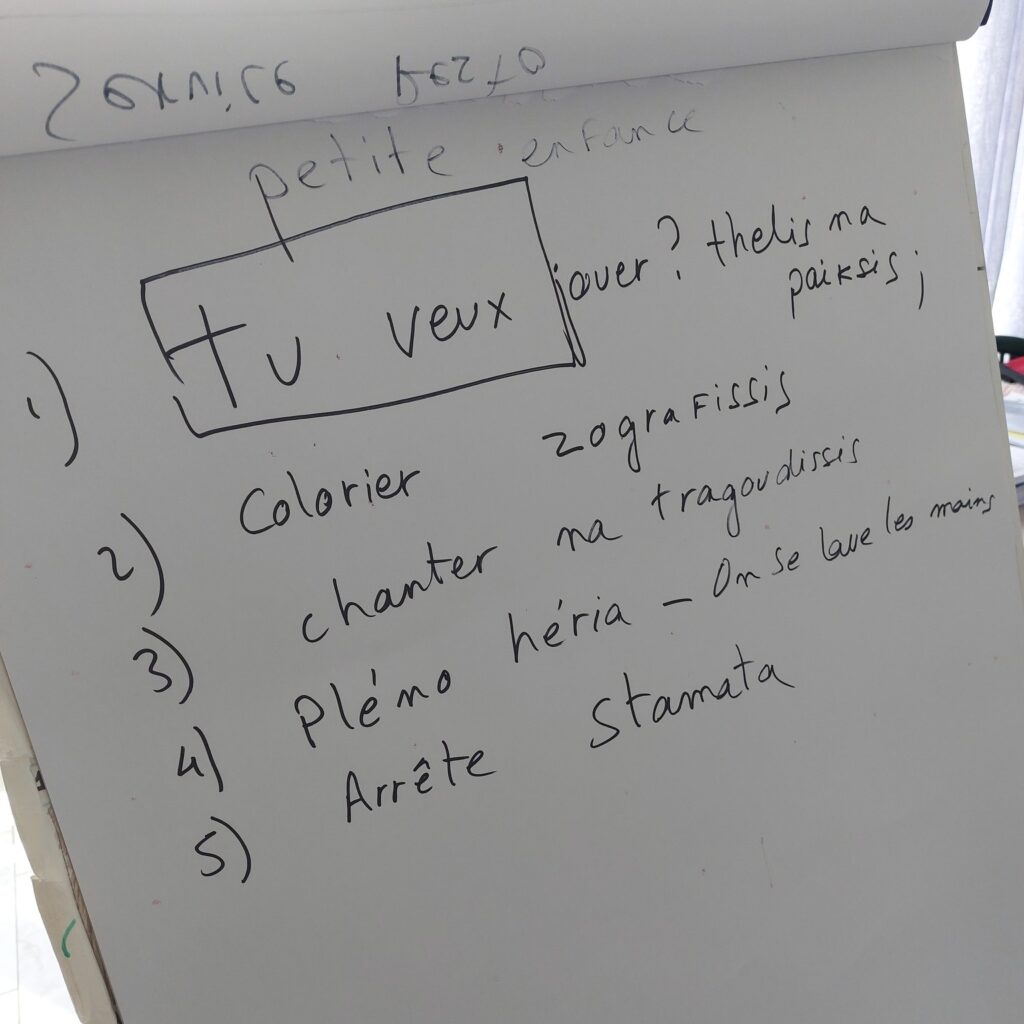 petite enfance
1) Tu veux jouer? thelis na
paiksis;
2) Colorier zografissis
3) chanter na tragoudissis
4) Pléno héria - On se lave les mains
5) Arrête Stamata